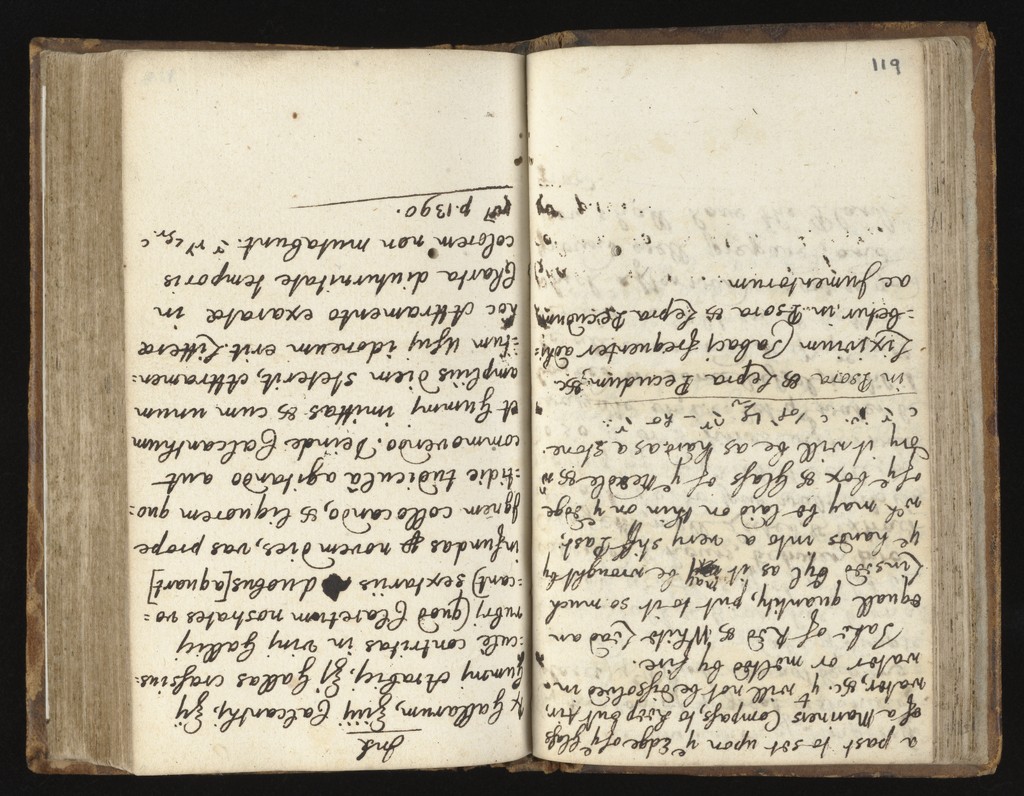 119
a past to set upon yᵉ Edge of yᵉ Glass
of a Mariners Compass, to keep out Air,
water, &c. yᵗ will not be dissolved in
water or melted by fire.
Take of Red & White Lead an
equall quantity, put to it so much
Linseed Oyl as it may be wrought by
yᵉ hands into a very stiff Past;
wᶜʰ may be laid on thin on yᵉ Edge
of yᵉ box & Glass of yᵉ Needle & wⁿ
dry it will be as hard as a stone.
in Psora & Lepra Pecudum, &c
Lixivium Tabaci frequenter adhi=
=betur, in Psora & Lepra Pecudum
ac Jumentorum.
Ink
℞ Gallarum, ℥iiij Calcanthi, ℥ij
Gummi Arabici, ℥j Gallas crassius=
=cule contritas in Vini Gallici
rubri (quod Claretum nostrates vo=
=cant) sextariis duobus [aquart]
infundas p novem dies, vas prope
Ignem collocando, & liquorem quo=
=tidie tudiculâ agitando aut
commovendo. Deinde Calcanthum
et Gummi imittas & cum unum
amplius diem steterit, Attramen=
=tum Usui idoneum erit. Litterae
hoc Attramento exaratae in
Charta diuturnitate temporis
colorem non mutabunt.
p. 1390.